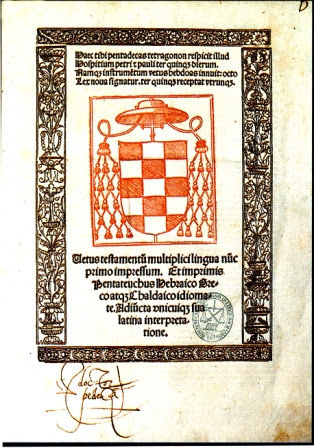 Haec tibi pentadecas tetragonon respicit illud
Hospitium petri ⁊ pauli ter quinqȝ dierum.
Namqȝ instrumētum vetus hebdoas innuit: octo
Lex nova signatur. ter quinqȝ receptat utrunqȝ.
Vetus testamentū multiplici lingua nūc
primo impressum. Et imprimis
Pentateuchus Hebraico Gre-
co atqȝ Chaldaico idioma-
te. Adiūcta unicuiqȝ sua
latina interpreta-
tione.